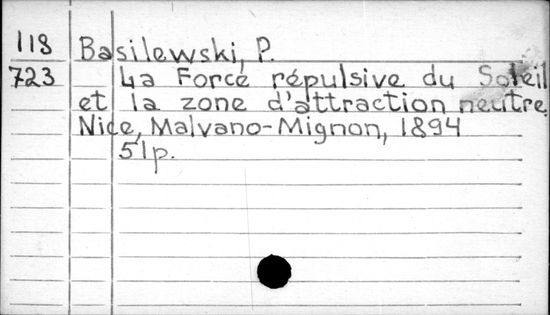 118 Basilewski, P.
723 La Force répulsive du Soleil
et la zone d'attraction neutre.
Nice, Malvano-Mignon, 1894
51p.